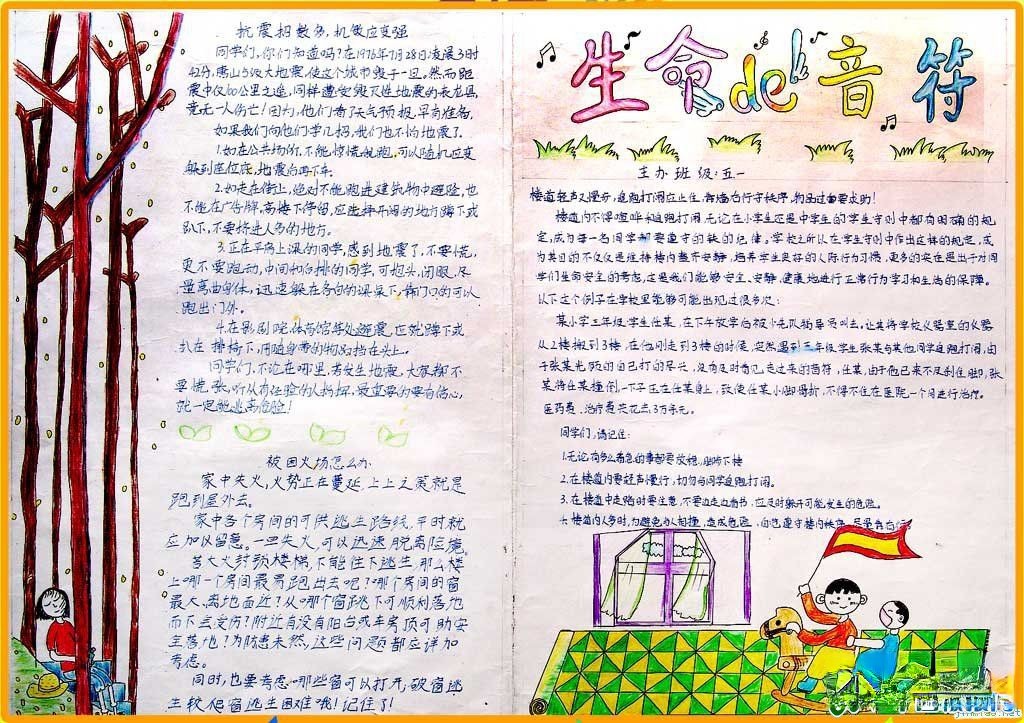 抗震招数多,机敏应变强
同学们,你们知道吗?在1976年7月28日凌晨3时
42分,唐山发生大地震,使这个城市毁于一旦,然而距
震中仅100公里之遥,同样遭受毁灭性地震的青龙县,
竟无一人伤亡!因为,他们看了天气预报,早有准备,
如果我们向他们学几招,我们也不怕地震了。
1.如在公共场所,不能惊慌乱跑,可以随机应变
躲到座位底,地震后再下车
2.如走在街上,绝对不能跑进建筑物中避险,也
不能在广告牌,高楼下停留,应选择开阔的地方蹲下或
趴下,不要挤进人多的地方。
3.正在平房上课的同学,感到地震了,不要慌,
更不要跑动,中间和后排的同学,可抱头,闭眼,尽
量离曲身体,迅速躲在各自的课桌下,靠门口的可以
跑出门外。
4.在影剧院,体育馆等处遇震,应就蹲下或
趴在排椅下,用随身带的物品挡在头上。
同学们,不论在哪里,若发生地震,大家都不
要慌张,听从有经验的人指挥,最重要的要有信心,
就一定能逃离危险!
被困火场怎么办
家中失火,火势正在蔓延,上上之策就是
跑到屋外去。
家中各个房间的可供逃生路线,平时就
应加以留意。一旦失火,可以迅速脱离险境。
若大火封锁楼梯,不能往下逃生,那么楼
上哪一个房间最易跑出去呢?哪个房间的窗
最大,离地面近?从哪个窗跳下可顺利落地
而不会受伤?附近有没有阳台或车房顶可助安
全落地?为防患未然,这些问题都应详加
考虑。
同时,也要考虑哪些窗可以打开,破窗逃
生较爬窗逃生困难哦!记住了!
生命de音符
主办班级:五一
楼道轻声又慢步,追跑打闹应止住,靠右行守秩序,物品过重要求助!
楼道内不得喧哗和追跑打闹,无论在小学生还是中学生的学生守则中都有明确的规
定,成为每一名同学都要遵守的铁的纪律。学校之所以在学生守则中作出这样的规定,成
为其目的不仅仅是维持楼内整齐安静,培养学生良好的人际行为习惯,更多的实在是出于对同
学们生命安全的考虑,这是我们能够安全、安静、健康地进行正常行为学习和生活的保障。
以下这个例子在学校里能够可能出现过很多次:
某小学三年级学生任某,在下午放学后被少先队辅导员叫去,让其将学校仪器室的仪器
从2楼搬到3楼,在他刚走到3楼的时候,突然遇到三年级学生张某与其他同学追跑打闹,由
于张某光顾的自己打的尽兴,没有及时看见走过来的任某,由于他已来不及刹住脚,张
某将任某撞倒,一下子压在任某身上,致使任某小脚骨折,不得不住在医院一个月进行治疗。
医药费、治疗费共花去3万多元。
同学们,请记住:
1.无论有多么着急的事都要放稳,脚踏下楼
2.在楼道内要轻声慢行,切勿与同学追跑打闹。
3.在楼道中走路时要注意,不要边走边看书,应及时躲开可能发生的危险。
4.楼道内人多时,勿避免与人相撞,造成危险,自觉遵守楼内秩序,尽量靠右行